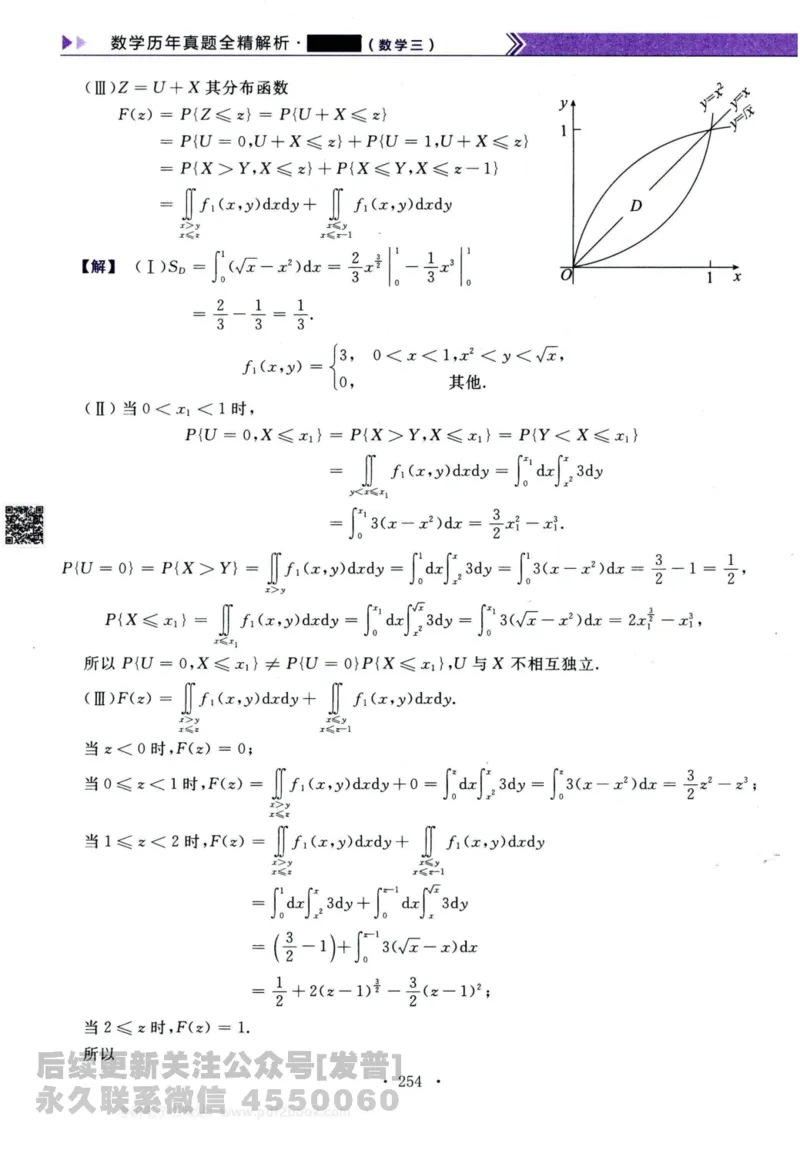 数学历年真题全精解析· （数学三）
（Ⅲ）Z = U + X 其分布函数
F(z) = P{Z ⩽ z} = P{U + X ⩽ z}
= P{U = 0, U + X ⩽ z} + P{U = 1, U + X ⩽ z}
= P{X > Y, X ⩽ z} + P{X ⩽ Y, X ⩽ z − 1}
= ∬_{x>y, x⩽z} f₁(x,y)dxdy + ∬_{x⩽y, x⩽z−1} f₁(x,y)dxdy
y 1 O 1 x D y=x² y=x y=√x
【解】（Ⅰ）S_D = ∫₀¹(√x − x²)dx = 2/3 x^{3/2} |₀¹ − 1/3 x³ |₀¹
= 2/3 − 1/3 = 1/3.
f₁(x,y) = {3, 0 < x < 1, x² < y < √x,
0, 其他.
（Ⅱ）当 0 < x₁ < 1 时,
P{U = 0, X ⩽ x₁} = P{X > Y, X ⩽ x₁} = P{Y < X ⩽ x₁}
= ∬_{y<x⩽x₁} f₁(x,y)dxdy = ∫₀^{x₁} dx ∫_{x²}^{x} 3dy
= ∫₀^{x₁} 3(x − x²)dx = 3/2 x₁² − x₁³.
P{U = 0} = P{X > Y} = ∬_{x>y} f₁(x,y)dxdy = ∫₀¹ dx ∫_{x²}^{x} 3dy = ∫₀¹ 3(x − x²)dx = 3/2 − 1 = 1/2,
P{X ⩽ x₁} = ∬_{x⩽x₁} f₁(x,y)dxdy = ∫₀^{x₁} dx ∫_{x²}^{√x} 3dy = ∫₀^{x₁} 3(√x − x²)dx = 2x₁^{3/2} − x₁³,
所以 P{U = 0, X ⩽ x₁} ≠ P{U = 0}P{X ⩽ x₁}, U 与 X 不相互独立.
（Ⅲ）F(z) = ∬_{x>y, x⩽z} f₁(x,y)dxdy + ∬_{x⩽y, x⩽z−1} f₁(x,y)dxdy.
当 z < 0 时, F(z) = 0;
当 0 ⩽ z < 1 时, F(z) = ∬_{x>y, x⩽z} f₁(x,y)dxdy + 0 = ∫₀^z dx ∫_{x²}^{x} 3dy = ∫₀^z 3(x − x²)dx = 3/2 z² − z³;
当 1 ⩽ z < 2 时, F(z) = ∬_{x>y, x⩽z} f₁(x,y)dxdy + ∬_{x⩽y, x⩽z−1} f₁(x,y)dxdy
= ∫₀¹ dx ∫_{x²}^{x} 3dy + ∫₀^{z−1} dx ∫_{x}^{√x} 3dy
= (3/2 − 1) + ∫₀^{z−1} 3(√x − x)dx
= 1/2 + 2(z − 1)^{3/2} − 3/2 (z − 1)²;
当 2 ⩽ z 时, F(z) = 1.
所以
后续更新关注公众号[发普]
· 254 ·
永久联系微信 4550060